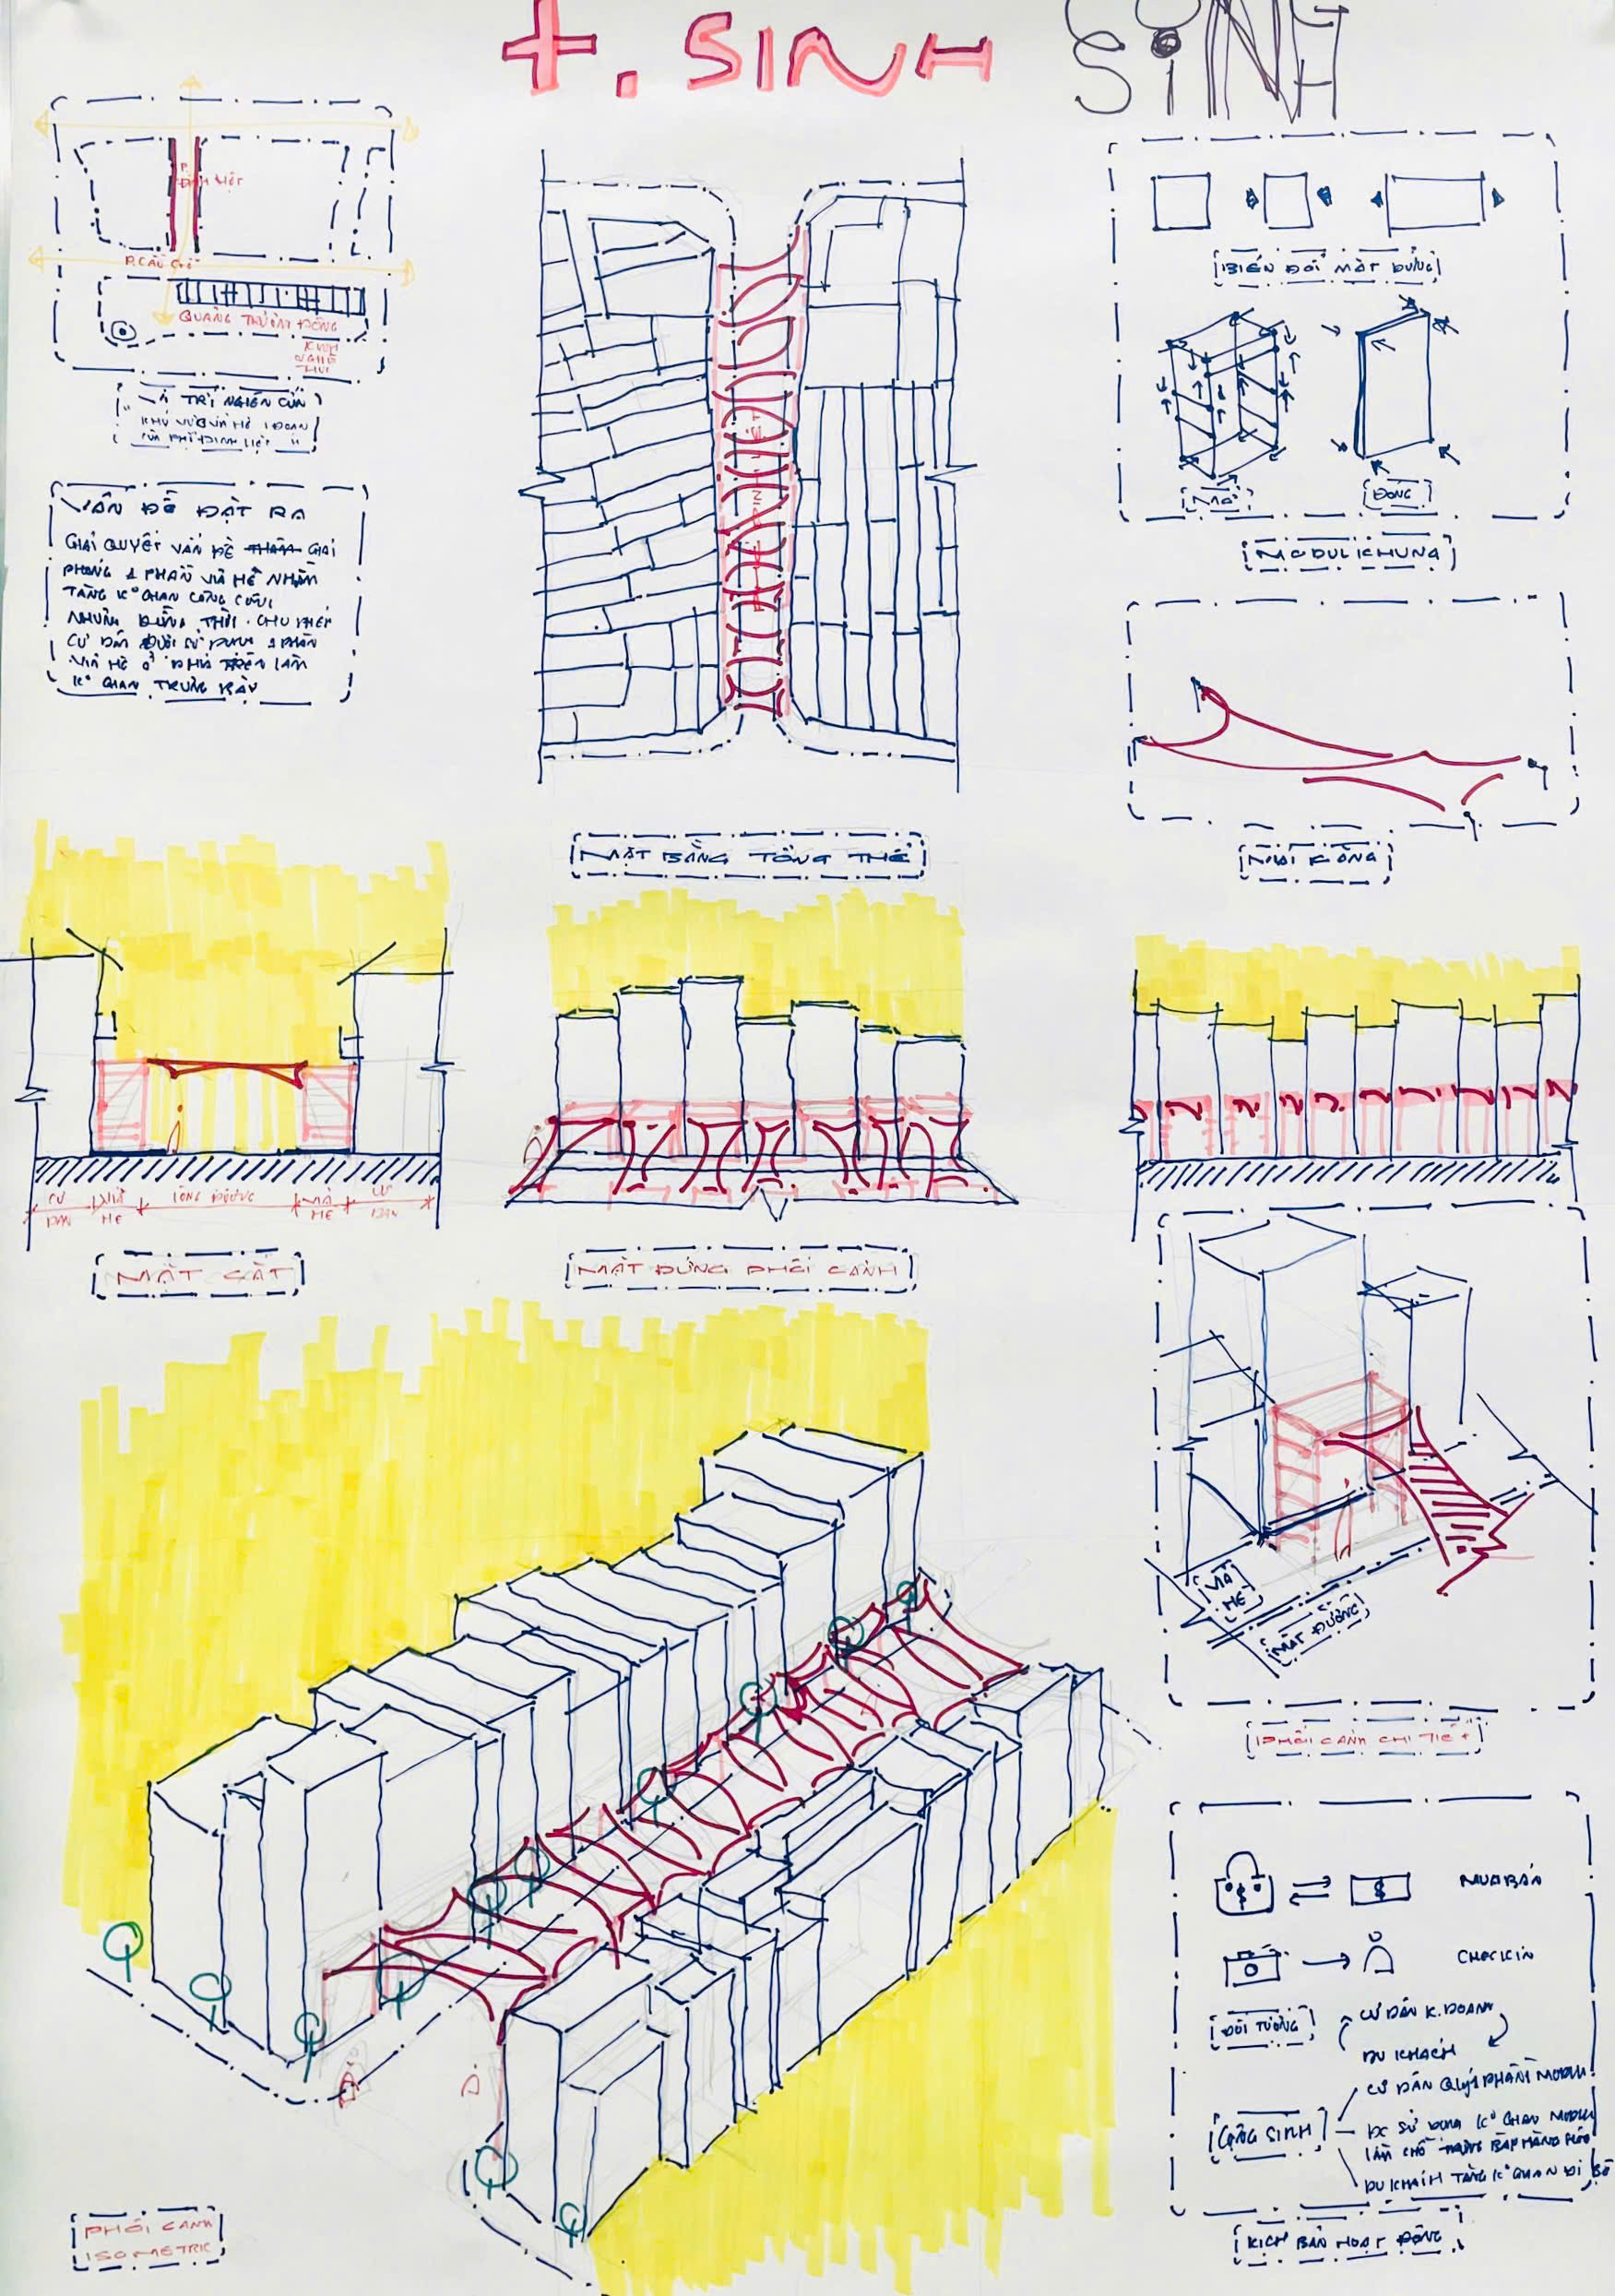 +. SINH
SINH
P. ĐINH LIỆT
P. CẦU GỖ
QUẢNG TRƯỜNG ĐÔNG
KINH
NGHĨA
THỤC
VỊ TRÍ NGIÊN CỨU
KHU VỰC VỈA HÈ 1 ĐOẠN
CỦA PHỐ ĐINH LIỆT
VẤN ĐỀ ĐẶT RA
GIẢI QUYẾT VẤN ĐỀ GIẢI
PHÓNG 1 PHẦN VỈA HÈ NHẰM
TĂNG K° GIAN CÔNG CỘNG
NHƯNG ĐỒNG THỜI CHO PHÉP
CƯ DÂN ĐƯỢC SỬ DỤNG 1 PHẦN
VỈA HÈ Ở PHÍA TRÊN LÀM
K° GIAN TRƯNG BÀY
MẶT BẰNG TỔNG THỂ
BIẾN ĐỔI MẶT ĐỨNG
MỞ
ĐÓNG
MODUL KHUNG
MÁI
CƯ
DÂN
VỈA
HÈ
LÒNG ĐƯỜNG
VỈA
HÈ
CƯ
DÂN
MẶT CẮT
MẶT ĐỨNG PHỐI CẢNH
VỈA
HÈ
MẶT ĐƯỜNG
PHỐI CẢNH CHI TIẾT
MUA BÁN
CHECKIN
ĐỐI TƯỢNG
CƯ DÂN K. DOANH
DU KHÁCH
CỘNG SINH
CƯ DÂN QLÝ 1 PHẦN MODUL
ĐC SỬ DỤNG K° GIAN MODUL
LÀM CHỖ TRƯNG BÀY HÀNG HÓA
DU KHÁCH TĂNG K° GIAN ĐI BỘ
KỊCH BẢN HOẠT ĐỘNG
PHỐI CẢNH
ISOMETRIC